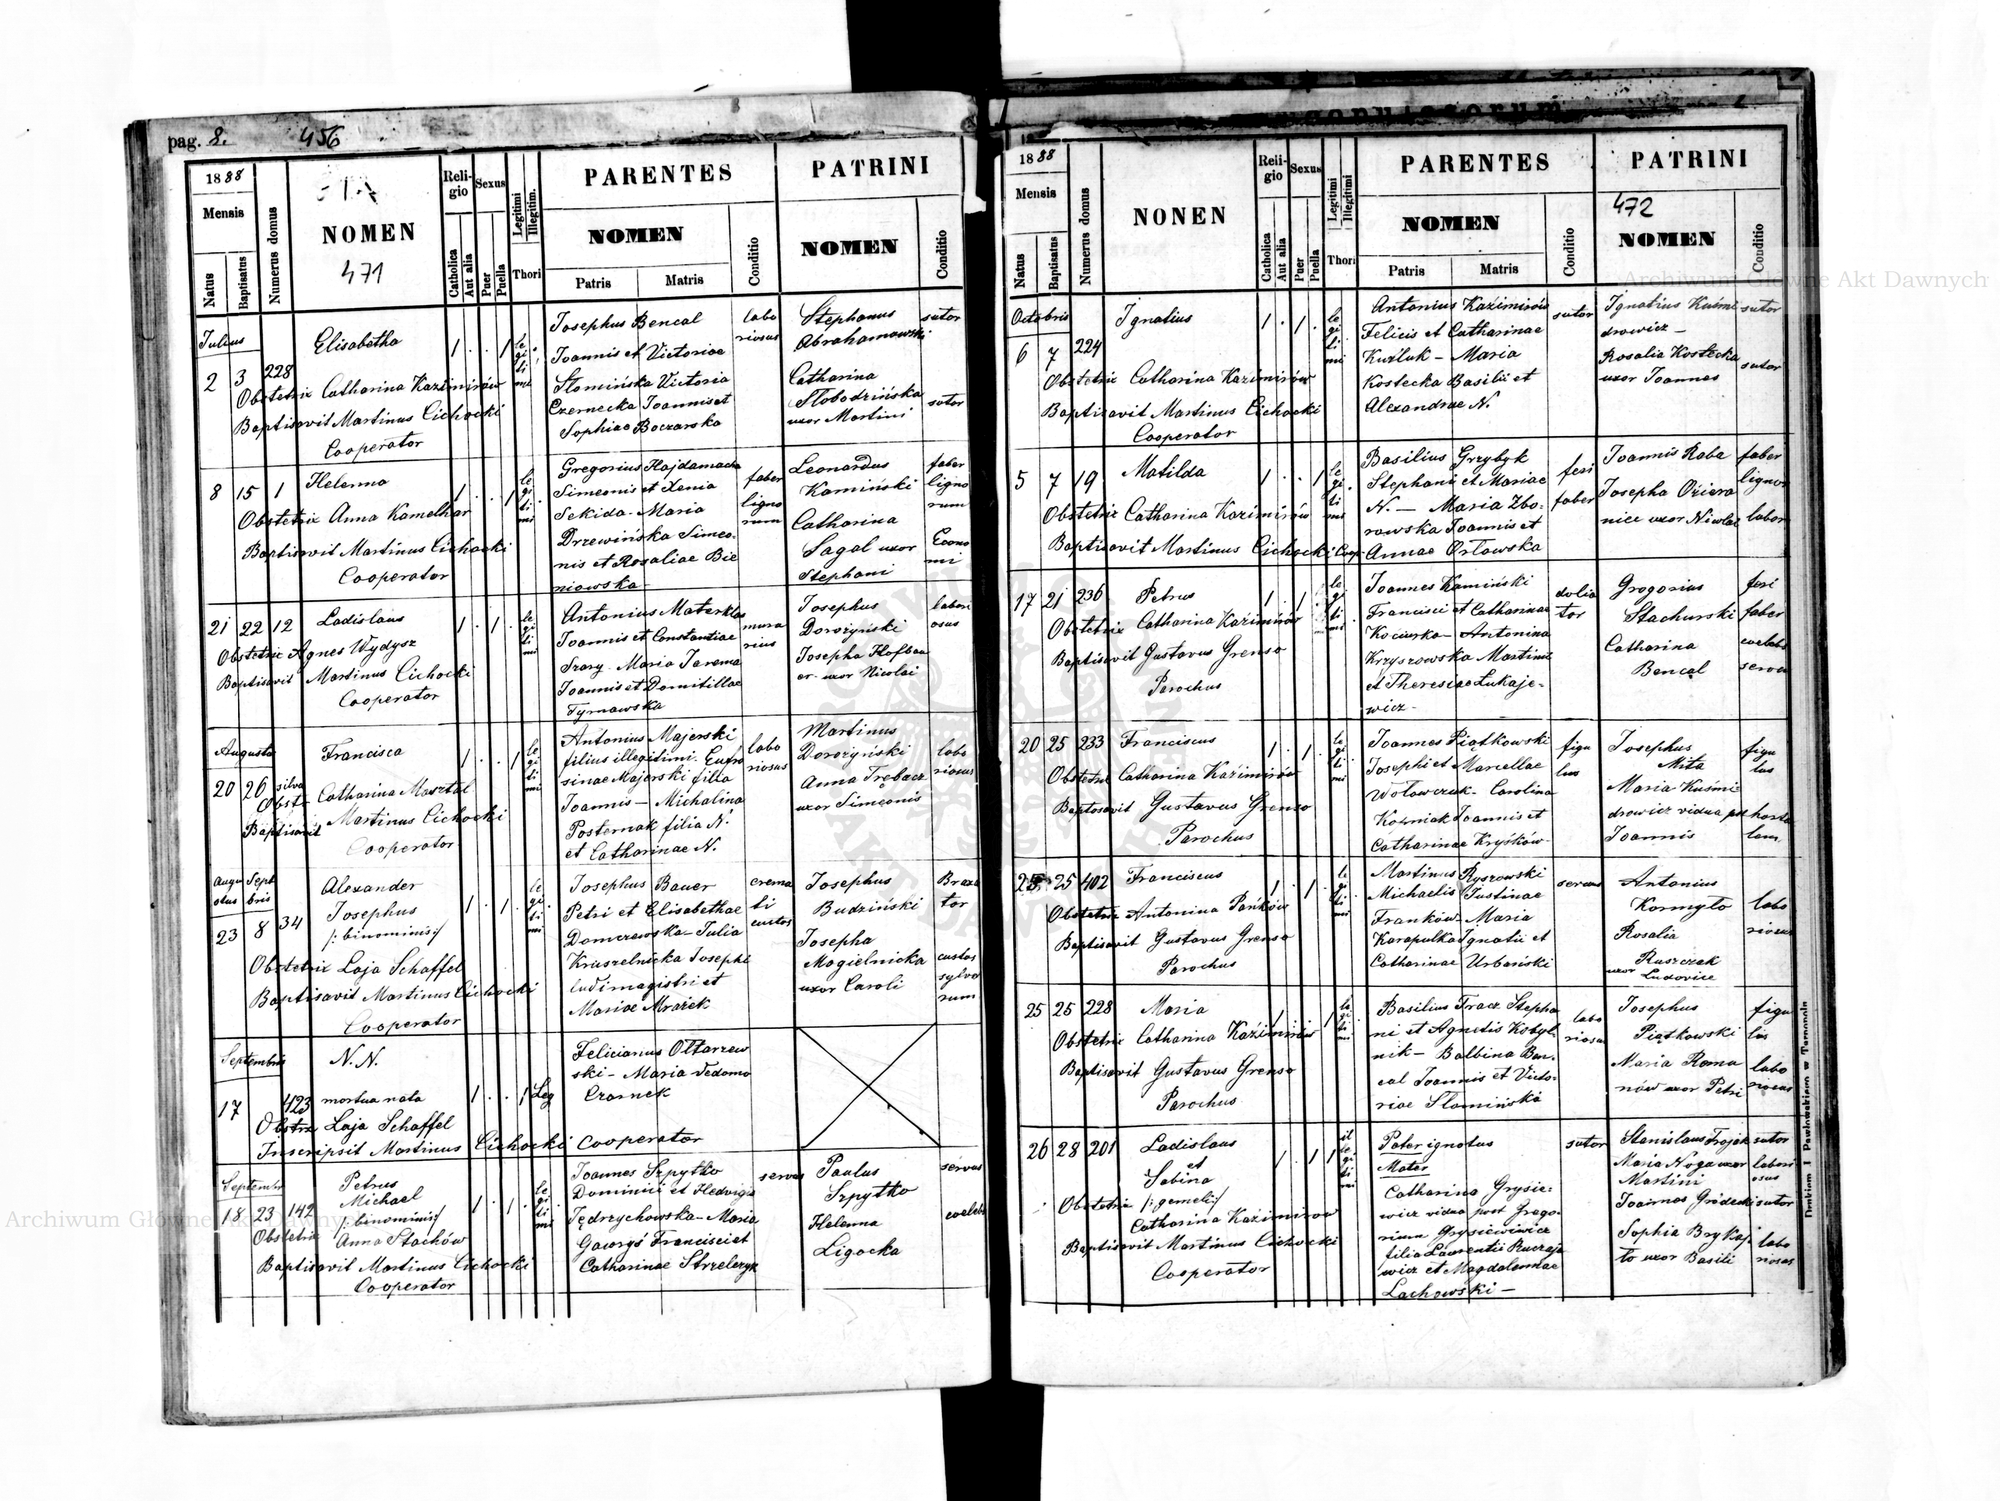 pag. 2.
456
1888
Mensis
Natus
Baptisatus
Numerus domus
NOMEN
471
Religio
Catholica
Aut alia
Sexus
Puer
Puella
Legitimi
Illegitim.
Thori
PARENTES
NOMEN
Patris
Matris
Conditio
PATRINI
NOMEN
Conditio
Julius
2 3 228
Elisabetha
1 . . 1
legitimi
Obstetrix Catharina Kaźimirów
Baptisavit Martinus Cichocki
Cooperator
Josephus Bencal
Joannis et Victoriae
Słomińska Victoria
Czernecka Joannis et
Sophiae Boczarska
laboriosus
Stephanus
Abrahamowski
Catharina
Słobodzińska
uxor Martini
sutor
sutor
8 15 1
Helenna
1 . . 1
legitimi
Obstetrix Anna Kamelhar
Baptisavit Martinus Cichocki
Cooperator
Gregorius Hajdamacha
Simeonis et Xenia
Sekida - Maria
Drzewińska Simeo-
nis et Rosaliae Bie
niowska
faber
lignorum
Leonardus
Kamiński
Catharina
Sagal uxor
Stephani
faber
lignorum
Economi
21 22 12
Ladislaus
1 . 1 .
legitimi
Obstetrix Agnes Wydysz
Baptisavit Martinus Cichocki
Cooperator
Antonius Materklas
Joannis et Constantiae
Szary - Maria Jarema
Joannis et Domitillae
Tymowska
murarius
Josephus
Dorożyński
Josepha Hofbau
er - uxor Nicolai
laboriosus
Augusta
20 26 silva
Francisca
1 . . 1
legitimi
Obstr. Catharina Masztal
Baptisavit Martinus Cichocki
Cooperator
Antonius Majerski
filius illegitimi. Eufro
sinae Majerski filia
Joannis - Michalina
Posternak filia N.
et Catharinae N.
laboriosus
Martinus
Dorożyński
Anna Trębacz
uxor Simeonis
laboriosus
Augustus Septbris
23 8 34
Alexander
Josephus
/: binominis :/
1 . 1 .
legitimi
Obstetrix Laja Schaffel
Baptisavit Martinus Cichocki
Cooperator
Josephus Bauer
Petri et Elisabethae
Domczewska - Julia
Kruszelnicka Josephi
ludimagistri et
Mariae Mrażek
cremati
custos
Josephus
Budziński
Josepha
Mogielnicka
uxor Caroli
Braxator
custos
sylvarum
Septembris
17 423
N. N.
mortua nata
1 . . 1 Leg
Obstrx Laja Schaffel
Inscripsit Martinus Cichocki Cooperator
Felicianus Ołtarzew
ski - Maria Vedomo
Czornek
Septembr
18 23 142
Petrus
Michael
/: binominis :/
1 . 1 .
legitimi
Obstetrix Anna Stachów
Baptisavit Martinus Cichocki
Cooperator
Joannes Szpytko
Dominici et Hedvigis
Jędrzychowska - Maria
Gaworys Francisci et
Catharinae Strzelczyk
servus
Paulus
Szpytko
Helenna
Ligocka
servus
coelebs
1888
Mensis
Natus
Baptisatus
Numerus domus
NONEN
Religio
Catholica
Aut alia
Sexus
Puer
Puella
Legitimi
Illegitimi
Thori
PARENTES
NOMEN
Patris
Matris
Conditio
PATRINI
472
NOMEN
Conditio
Octobris
6 7 224
Ignatius
1 . 1 .
legitimi
Obstetrix Catharina Kaźimirów
Baptisavit Martinus Cichocki
Cooperator
Antonius Kaźimirów
Felicis et Catharinae
Kużluk - Maria
Kostecka Basilii et
Alexandrae N.
sutor
Ignatius Kuśmi
drowicz -
Rosalia Kostecka
uxor Joannes
sutor
sutor
5 7 19
Matilda
1 . . 1
legitimi
Obstetrix Catharina Kaźimirów
Baptisavit Martinus Cichocki Coop.
Basilius Grzybyk
Stephani et Mariae
N. - Maria Zbo-
rowska Joannis et
Annae Orłowska
feri
faber
Joannis Raba
Josepha Oziera
nice uxor Nicolai
faber
lignor
labor
17 21 236
Petrus
1 . 1 .
legitimi
Obstetrix Catharina Kaźimirów
Baptisavit Gustavus Grenso
Parochus
Joannes Kamiński
Francisci et Catharinae
Kociurka - Antonina
Krzyszowska Martini
et Theresiae Łukaje-
wicz -
doliator
Grogorius
Stachurski
Catharina
Bencal
feri
faber
coelebs
serva
20 25 233
Franciscus
1 . 1 .
legitimi
Obstetrix Catharina Kaźimirów
Baptosavit Gustavus Grenso
Parochus
Joannes Piątkowski
Josephi et Marcellae
Wołowczuk - Carolina
Koźniak Joannis et
Catharinae Kryśków
figulus
Josephus
Mita
Maria Kuśmi
drowicz vidua pst
Joannis
figulus
25 25 402
Franciscus
1 . 1 .
legitimi
Obstetrix Antonina Pańków
Baptisavit Gustavus Grenso
Parochus
Martinus Ryszowski
Michaelis Justinae
Franków - Maria
Karapulka Ignatii et
Catharinae Urbański
servus
Antonius
Kormyło
Rosalia
Ruszczak
uxor Ludovice
laboriosus
25 25 228
Maria
1 . . 1
legitimi
Obstetrix Catharina Kaźimirów
Baptisavit Gustavus Grenso
Parochus
Basilius Tracz Stepha
ni et Agnetis Kobyl
nik - Balbina Ben-
cal Joannis et Victo-
riae Słomińska
laboriosus
Josephus
Piątkowski
Maria Roma
nów uxor Petri
figulus
laboriosus
26 28 201
Ladislaus
et
Sabina
/: gemeli :/
1 . 1 1
illegitimi
Obstetrix Catharina Kaźimirow
Baptisavit Martinus Cichocki
Cooperator
Pater ignotus
Mater
Catharina Grysie-
wicz vidua post Grego-
rium Grysiewiewicz
filia Laurentii Ruczaja
wicz et Magdalennae
Lachowski -
sutor
Stanislaus Trojak
Maria Noga uxor
Martini
Joannes Gródecki
Sophia Brykaj
ło uxor Basili
sutor
laboriosus
sutor
laboriosus
Drukiem J. Pawłowskiego w Tarnopolu
Archiwum Główne Akt Dawnych
Archiwum Główne Akt Dawnych